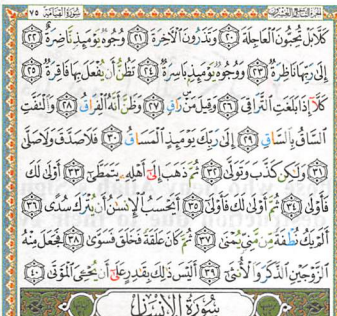 الجزء التاسع والعشرون سورة القيامة ٧٥
كَلَّا بَلْ تُحِبُّونَ ٱلْعَاجِلَةَ ٢٠ وَتَذَرُونَ ٱلْأَخِرَةَ ٢١ وُجُوهٌ يَوْمَئِذٍ نَّاضِرَةٌ ٢٢
إِلَىٰ رَبِّهَا نَاظِرَةٌ ٢٣ وَوُجُوهٌ يَوْمَئِذٍ بَاسِرَةٌ ٢٤ تَظُنُّ أَن يُفْعَلَ بِهَا فَاقِرَةٌ ٢٥
كَلَّآ إِذَا بَلَغَتِ ٱلتَّرَاقِيَ ٢٦ وَقِيلَ مَنْ رَاقٍ ٢٧ وَظَنَّ أَنَّهُ ٱلْفِرَاقُ ٢٨ وَٱلْتَفَّتِ
ٱلسَّاقُ بِٱلسَّاقِ ٢٩ إِلَىٰ رَبِّكَ يَوْمَئِذٍ ٱلْمَسَاقُ ٣٠ فَلَا صَدَّقَ وَلَا صَلَّىٰ
٣١ وَلَٰكِن كَذَّبَ وَتَوَلَّىٰ ٣٢ ثُمَّ ذَهَبَ إِلَىٰٓ أَهْلِهِۦ يَتَمَطَّىٰٓ ٣٣ أَوْلَىٰ لَكَ
فَأَوْلَىٰ ٣٤ ثُمَّ أَوْلَىٰ لَكَ فَأَوْلَىٰٓ ٣٥ أَيَحْسَبُ ٱلْإِنسَٰنُ أَن يُتْرَكَ سُدًى ٣٦
أَلَمْ يَكُ نُطْفَةً مِّن مَّنِيٍّ يُمْنَىٰ ٣٧ ثُمَّ كَانَ عَلَقَةً فَخَلَقَ فَسَوَّىٰ ٣٨ فَجَعَلَ مِنْهُ
ٱلزَّوْجَيْنِ ٱلذَّكَرَ وَٱلْأُنثَىٰٓ ٣٩ أَلَيْسَ ذَٰلِكَ بِقَٰدِرٍ عَلَىٰٓ أَن يُحْـِۧيَ ٱلْمَوْتَىٰ ٤٠
سُورَةُ ٱلْإِنسَٰنِ